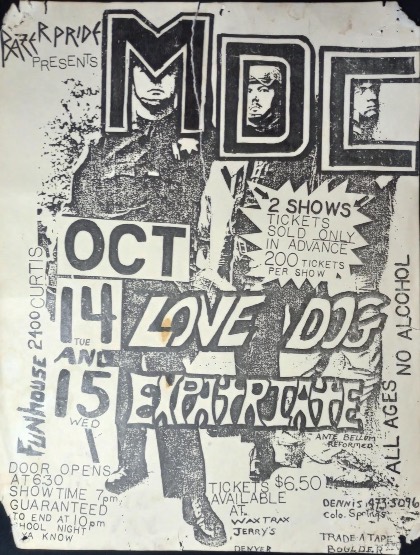 RAZER PRIDE
PRESENTS
MDC
2 SHOWS
TICKETS
SOLD ONLY
IN ADVANCE
200 TICKETS
PER SHOW
OCT
14
TUE
AND
15
WED
LOVE DOG
EXPATRIATE
ANTE BELLUM
REFORMED
FUNHOUSE 2400 CURTIS
ALL AGES NO ALCOHOL
DOOR OPENS
AT 6:30
SHOWTIME 7pm
GUARANTEED
TO END AT 10pm
HOOL NIGHT
YA KNOW
TICKETS $6.50
AVAILABLE
AT
WAXTRAX
JERRY'S
DENVER
DENNIS 473-5096
Colo. Springs
TRADE A TAPE
BOULDER